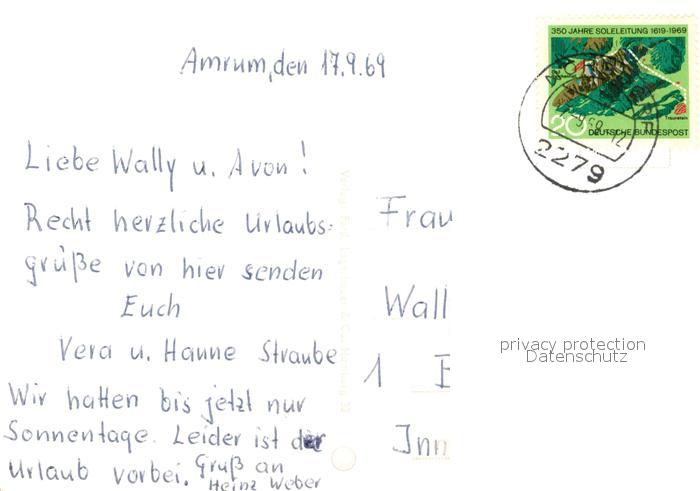 Amrum, den 17.9.69
350 JAHRE SOLELEITUNG 1619-1969
Traunstein
20 DEUTSCHE BUNDESPOST
2279
Liebe Wally u. Avon!
Recht herzliche Urlaubs-
grüße von hier senden
Euch
Vera u. Hanne Straube
Wir hatten bis jetzt nur
Sonnentage. Leider ist der
Urlaub vorbei. Gruß an
Heinz Weber
Frau
Wall
1
Inn
privacy protection
Datenschutz